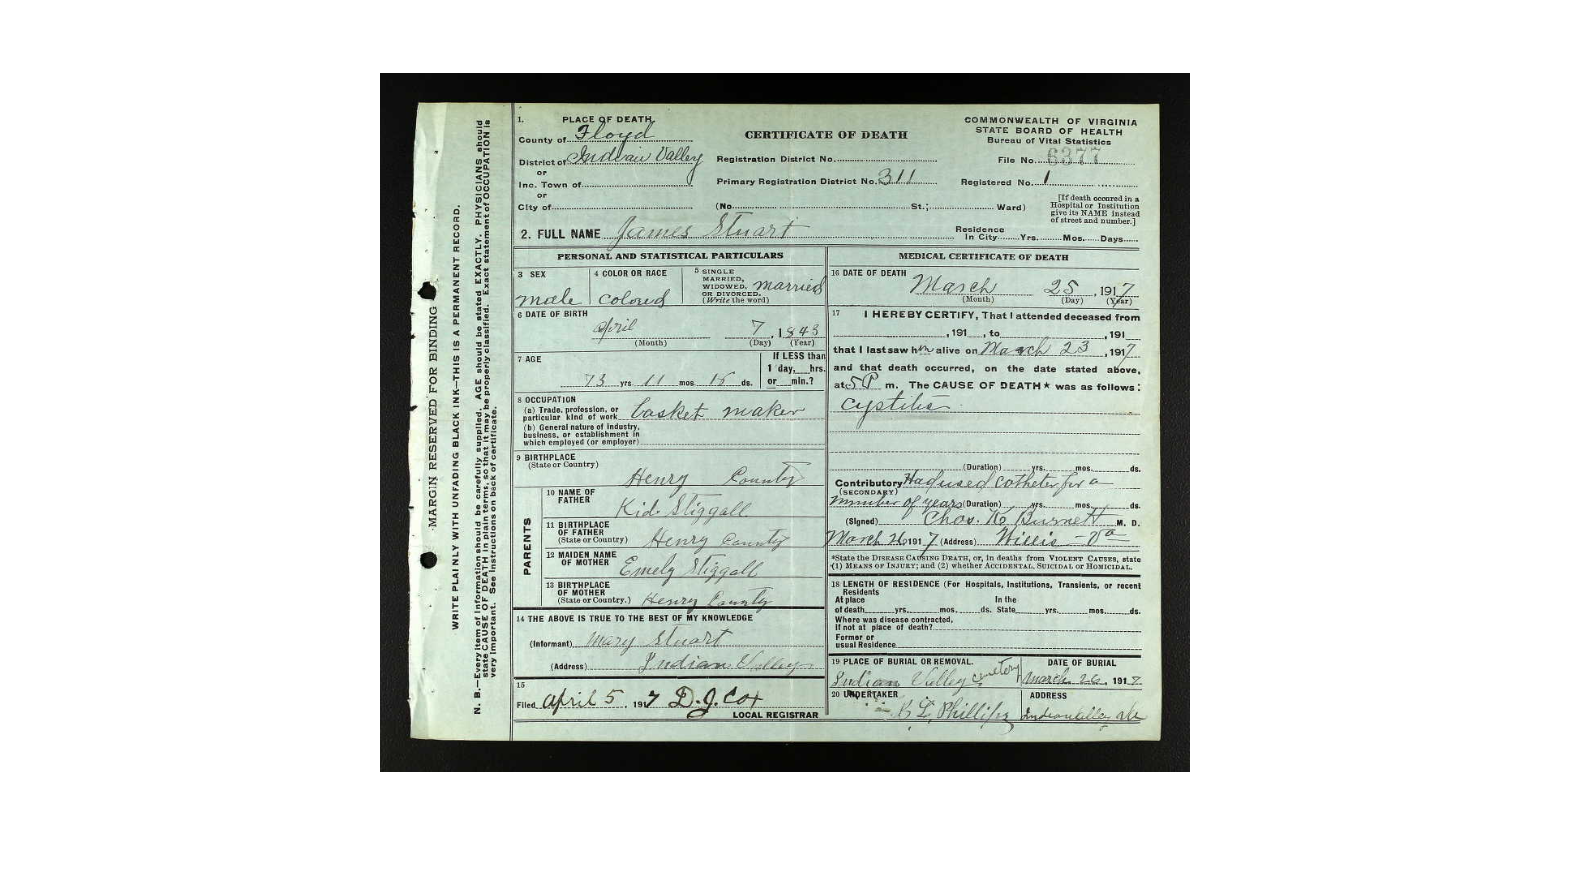 MARGIN RESERVED FOR BINDING
WRITE PLAINLY WITH UNFADING BLACK INK—THIS IS A PERMANENT RECORD.
N. B.—Every item of information should be carefully supplied. AGE should be stated EXACTLY. PHYSICIANS should
state CAUSE OF DEATH in plain terms, so that it may be properly classified. Exact statement of OCCUPATION is
very important. See instructions on back of certificate.
1. PLACE OF DEATH.
County of Floyd
District of Indian Valley
or
Inc. Town of
or
City of
CERTIFICATE OF DEATH
Registration District No.
Primary Registration District No. 311
(No. St.; Ward)
COMMONWEALTH OF VIRGINIA
STATE BOARD OF HEALTH
Bureau of Vital Statistics
File No. 6377
Registered No. 1
[If death occured in a
Hospital or Institution
give its NAME instead
of street and number.]
2. FULL NAME James Stuart
Residence
In City Yrs. Mos. Days
PERSONAL AND STATISTICAL PARTICULARS
3 SEX
male
4 COLOR OR RACE
colored
5 SINGLE
MARRIED,
WIDOWED.
OR DIVORCED.
(Write the word)
married
6 DATE OF BIRTH
April 7, 1843
(Month) (Day) (Year)
7 AGE
73 yrs 11 mos. 15 ds.
If LESS than
1 day, hrs.
or min.?
8 OCCUPATION
(a) Trade, profession, or
particular kind of work basket maker
(b) General nature of industry,
business, or establishment in
which employed (or employer)
9 BIRTHPLACE
(State or Country)
Henry County
PARENTS
10 NAME OF
FATHER
Kid Stiggall
11 BIRTHPLACE
OF FATHER
(State or Country) Henry County
12 MAIDEN NAME
OF MOTHER Emely Stiggall
13 BIRTHPLACE
OF MOTHER
(State or Country.) Henry County
14 THE ABOVE IS TRUE TO THE BEST OF MY KNOWLEDGE
(Informant) Mary Stuart
(Address) Indian Valley
15
Filed April 5 1917 D.J. Cox
LOCAL REGISTRAR
MEDICAL CERTIFICATE OF DEATH
16 DATE OF DEATH
March 25, 1917
(Month) (Day) (Year)
17 I HEREBY CERTIFY, That I attended deceased from
, 191 , to , 191
that I last saw him alive on March 23, 1917
and that death occurred, on the date stated above,
at 5 P m. The CAUSE OF DEATH★ was as follows:
cystitis
(Duration) yrs. mos. ds.
Contributory Had used catheter for a
(SECONDARY)
number of years (Duration) yrs. mos. ds.
(Signed) Chas. M. Burnett M. D.
March 26 1917 (Address) Willis - Va
*State the DISEASE CAUSING DEATH, or, in deaths from VIOLENT CAUSES, state
(1) MEANS OF INJURY; and (2) whether ACCIDENTAL, SUICIDAL OR HOMICIDAL.
18 LENGTH OF RESIDENCE (For Hospitals, Institutions, Transients, or recent
Residents
At place In the
of death yrs. mos. ds. State yrs. mos. ds.
Where was disease contracted,
If not at place of death?
Former or
usual Residence
19 PLACE OF BURIAL OR REMOVAL.
Indian Valley cemetery
DATE OF BURIAL
March 26, 1917
20 UNDERTAKER
B L Phillips
ADDRESS
Indian Valley Va